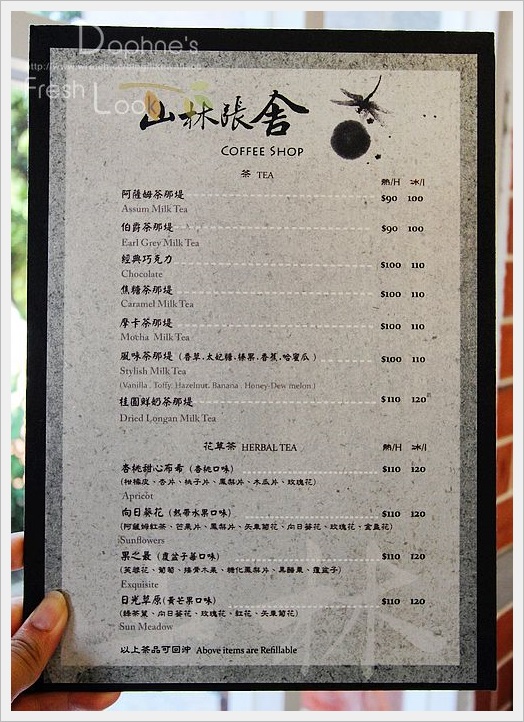 Daphne's
Fresh Look
山林張舍
COFFEE SHOP
茶 TEA
熱/H 冰/I
阿薩姆茶那堤 $90 100
Assum Milk Tea
伯爵茶那堤 $90 100
Earl Grey Milk Tea
經典巧克力 $100 110
Chocolate
焦糖茶那堤 $100 110
Caramel Milk Tea
摩卡茶那堤 $100 110
Mocha Milk Tea
風味茶那堤 (香草.太妃糖.榛果.香蕉.哈蜜瓜) $100 110
Stylish Milk Tea
(Vanilla . Toffy. Hazelnut. Banana . Honey-Dew melon)
桂圓鮮奶茶那堤 $110 120
Dried Longan Milk Tea
花草茶 HERBAL TEA 熱/H 冰/I
杏桃甜心布希 (杏桃口味) $110 120
(柑橘皮、杏片、桃子片、鳳梨片、木瓜片、玫瑰花)
Apricot
向日葵花 (熱帶水果口味) $110 120
(阿薩姆紅茶、芒果片、鳳梨片、矢車菊花、向日葵花、玫瑰花、金盞花)
Sunflowers
果之最 (覆盆子莓口味) $110 120
(芙蓉花、葡萄、接骨木果、糖化鳳梨片、黑醋栗、覆盆子)
Exquisite
日光草原(黃芒果口味) $110 120
(綠茶葉、向日葵花、玫瑰花、紅花、矢車菊花)
Sun Meadow
以上茶品可回沖 Above items are Refillable